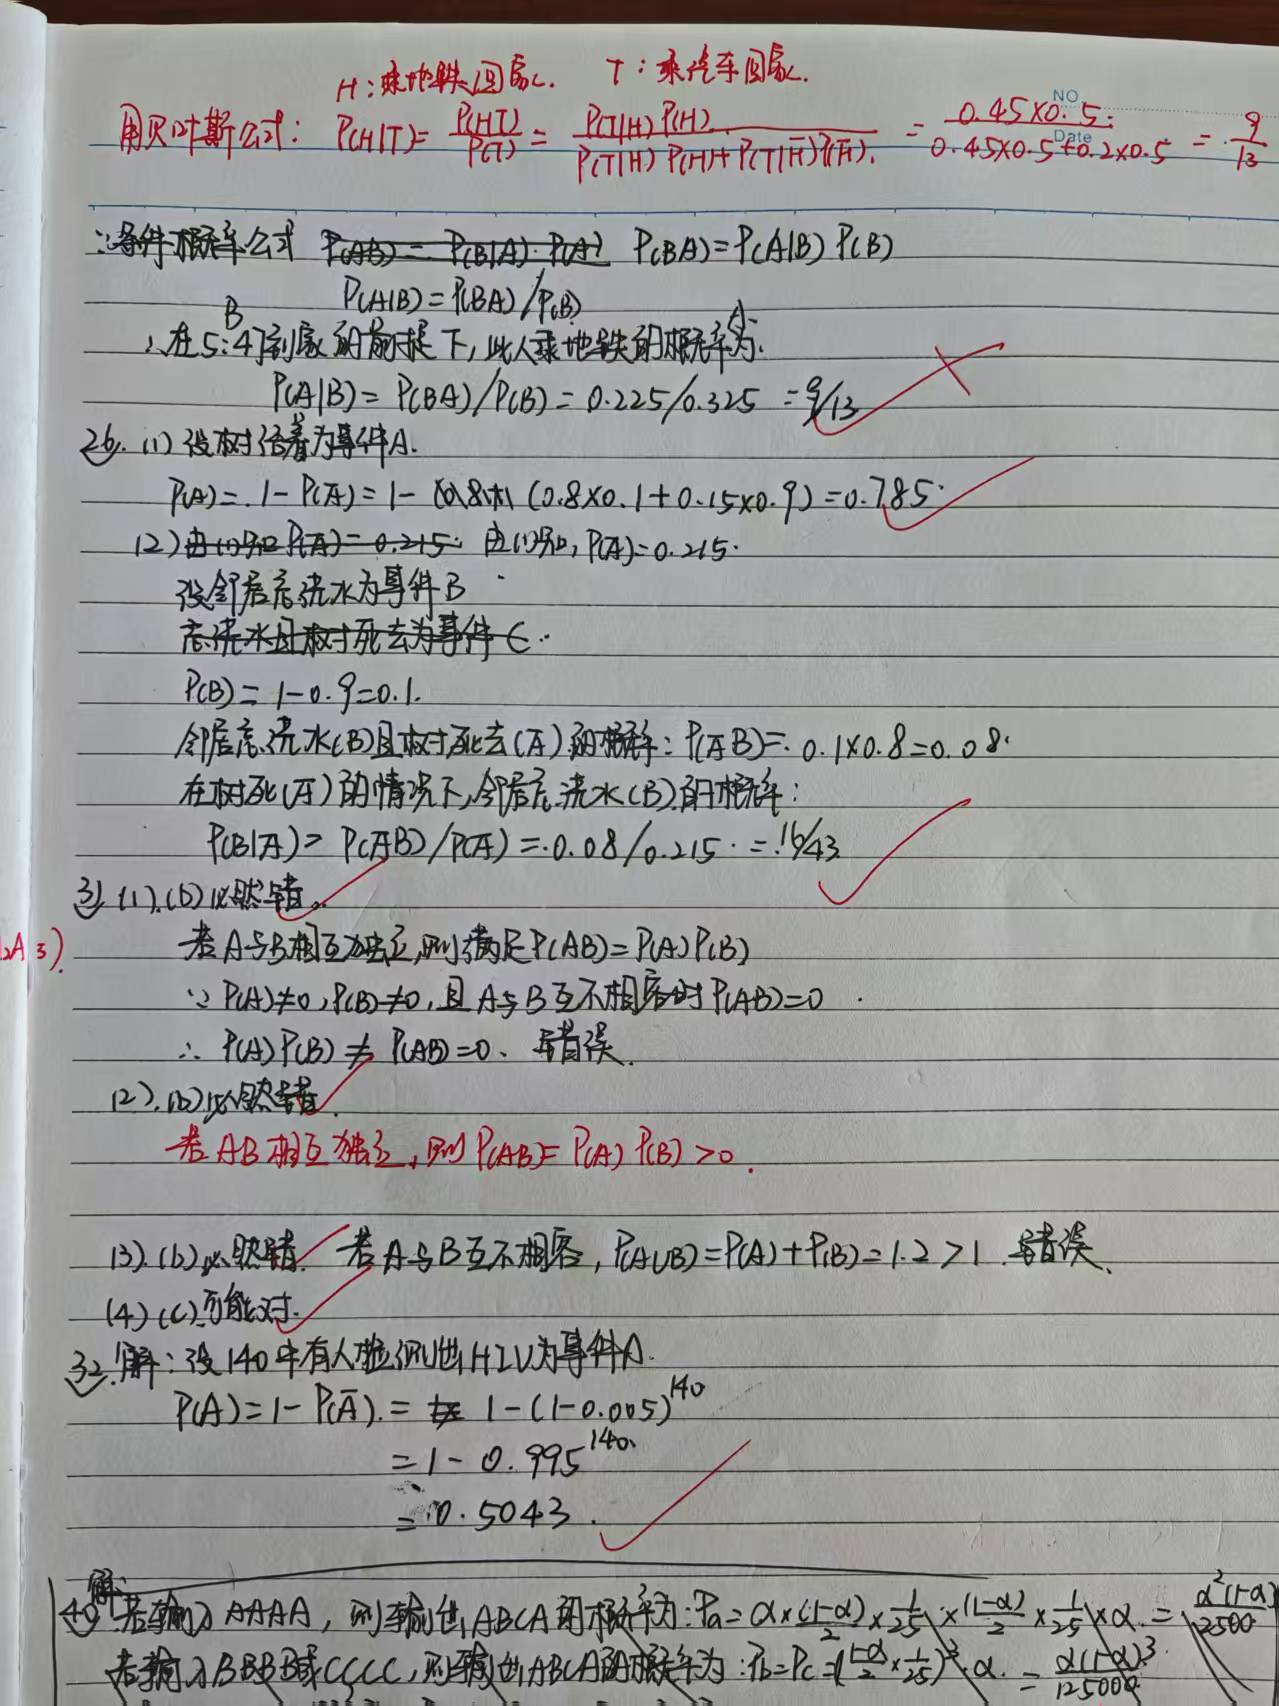 H：乘地铁回家. T：乘汽车回家.
NO
Date
用贝叶斯公式： P(H|T)= P(HT)/P(T) = P(T|H)P(H)/P(T|H)P(H)+P(T|H̅)P(H̅). = 0.45×0.5/0.45×0.5+0.2×0.5 = 9/13
∵条件概率公式 P(AB)=P(B|A)·P(A) P(BA)=P(A|B)P(B)
P(A|B)=P(BA)/P(B)
B A
∴在5:47到家的前提下,此人乘地铁的概率为.
P(A|B)=P(BA)/P(B)=0.225/0.325=9/13
26. (1)设树活着为事件A.
P(A)=1-P(A̅)=1- (0.8×0.1+0.15×0.9)=0.785.
(2)由(1)知P(A̅)=0.215. 由(1)知,P(A̅)=0.215.
设邻居忘浇水为事件B
忘浇水且树死去为事件C.
P(B)=1-0.9=0.1.
邻居忘浇水(B)且树死去(A̅)的概率：P(A̅B)=0.1×0.8=0.08.
在树死(A̅)的情况下,邻居忘浇水(B)的概率：
P(B|A̅)=P(A̅B)/P(A̅)=0.08/0.215=16/43
31 (1).(b)必然错.
A3).
若A与B相互独立,则满足P(AB)=P(A)P(B)
∵P(A)≠0,P(B)≠0,且A与B互不相容时P(AB)=0
∴P(A)P(B)≠P(AB)=0. 错误.
(2).(b)必然错.
若AB相互独立,则P(AB)=P(A)P(B)>0.
(3).(b)必然错. 若A与B互不相容,P(A∪B)=P(A)+P(B)=1.2>1.错误.
(4)(c)可能对.
32.解：设140中有人检测出HIV为事件A.
P(A)=1-P(A̅)= 1-(1-0.005)^140
=1-0.995^140
=0.5043.
40解 若输入AAAA,则输出ABCA的概率为：Pa=α×(1-α)/2×1/25×(1-α)/2×1/25×α=α²(1-α)/2500
若输入BBBB或CCCC,则输出ABCA的概率为：Pb=Pc=(1-α/2×1/25)³·α=α(1-α)³/125000